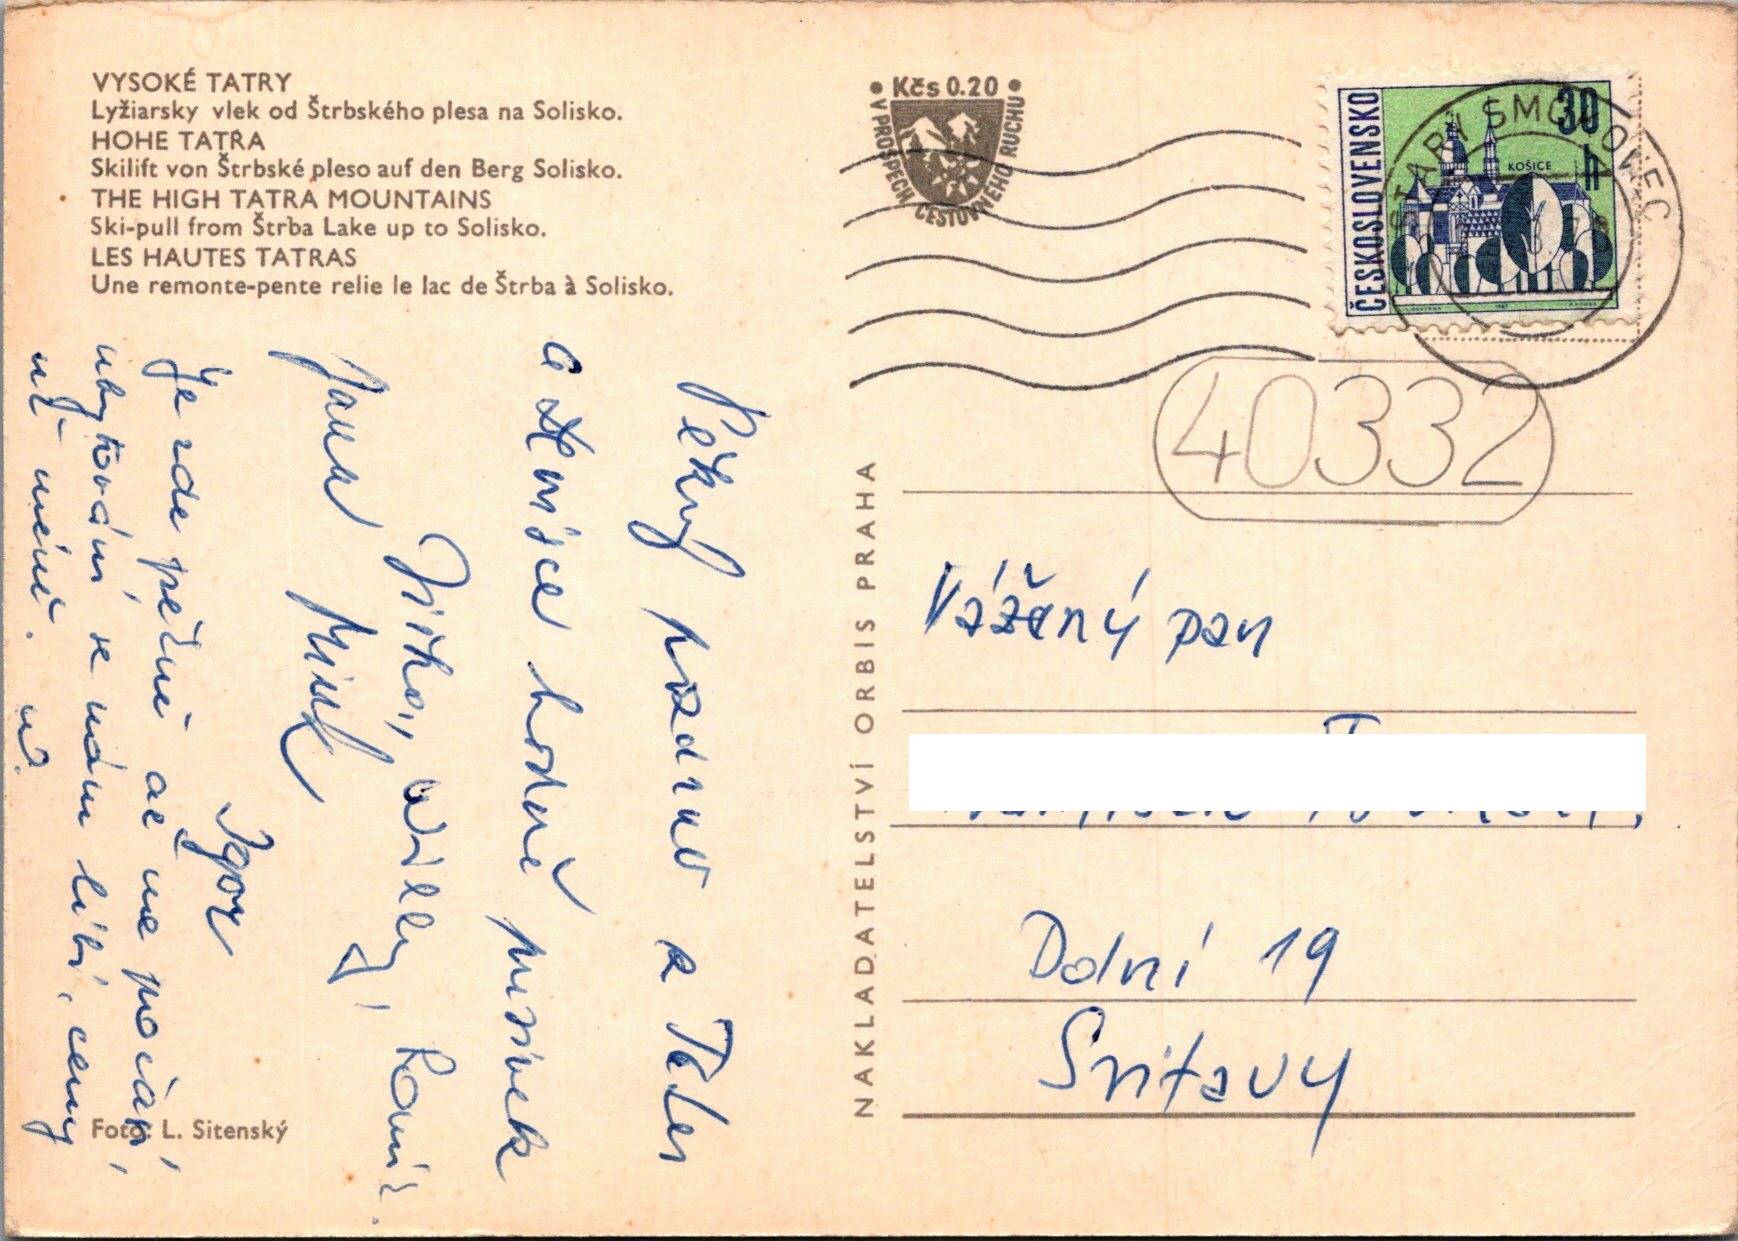 VYSOKÉ TATRY
Lyžiarsky vlek od Štrbského plesa na Solisko.
HOHE TATRA
Skilift von Štrbské pleso auf den Berg Solisko.
THE HIGH TATRA MOUNTAINS
Ski-pull from Štrba Lake up to Solisko.
LES HAUTES TATRAS
Une remonte-pente relie le lac de Štrba à Solisko.
Kčs 0.20
V PROSPECH CESTOVNÉHO RUCHU
ČESKOSLOVENSKO
30 h
KOŠICE
STARÝ SMOKOVEC
40332
Pěkný pozdrav z Tater
a hodně
Jirka,
Jana
Igor
Je zde pěkně ač ne počasí,
ubytování se nám líbí, ceny
už méně.
NAKLADATELSTVÍ ORBIS PRAHA
Vážený pan
Dolní 19
Svitavy
Foto: L. Sitenský